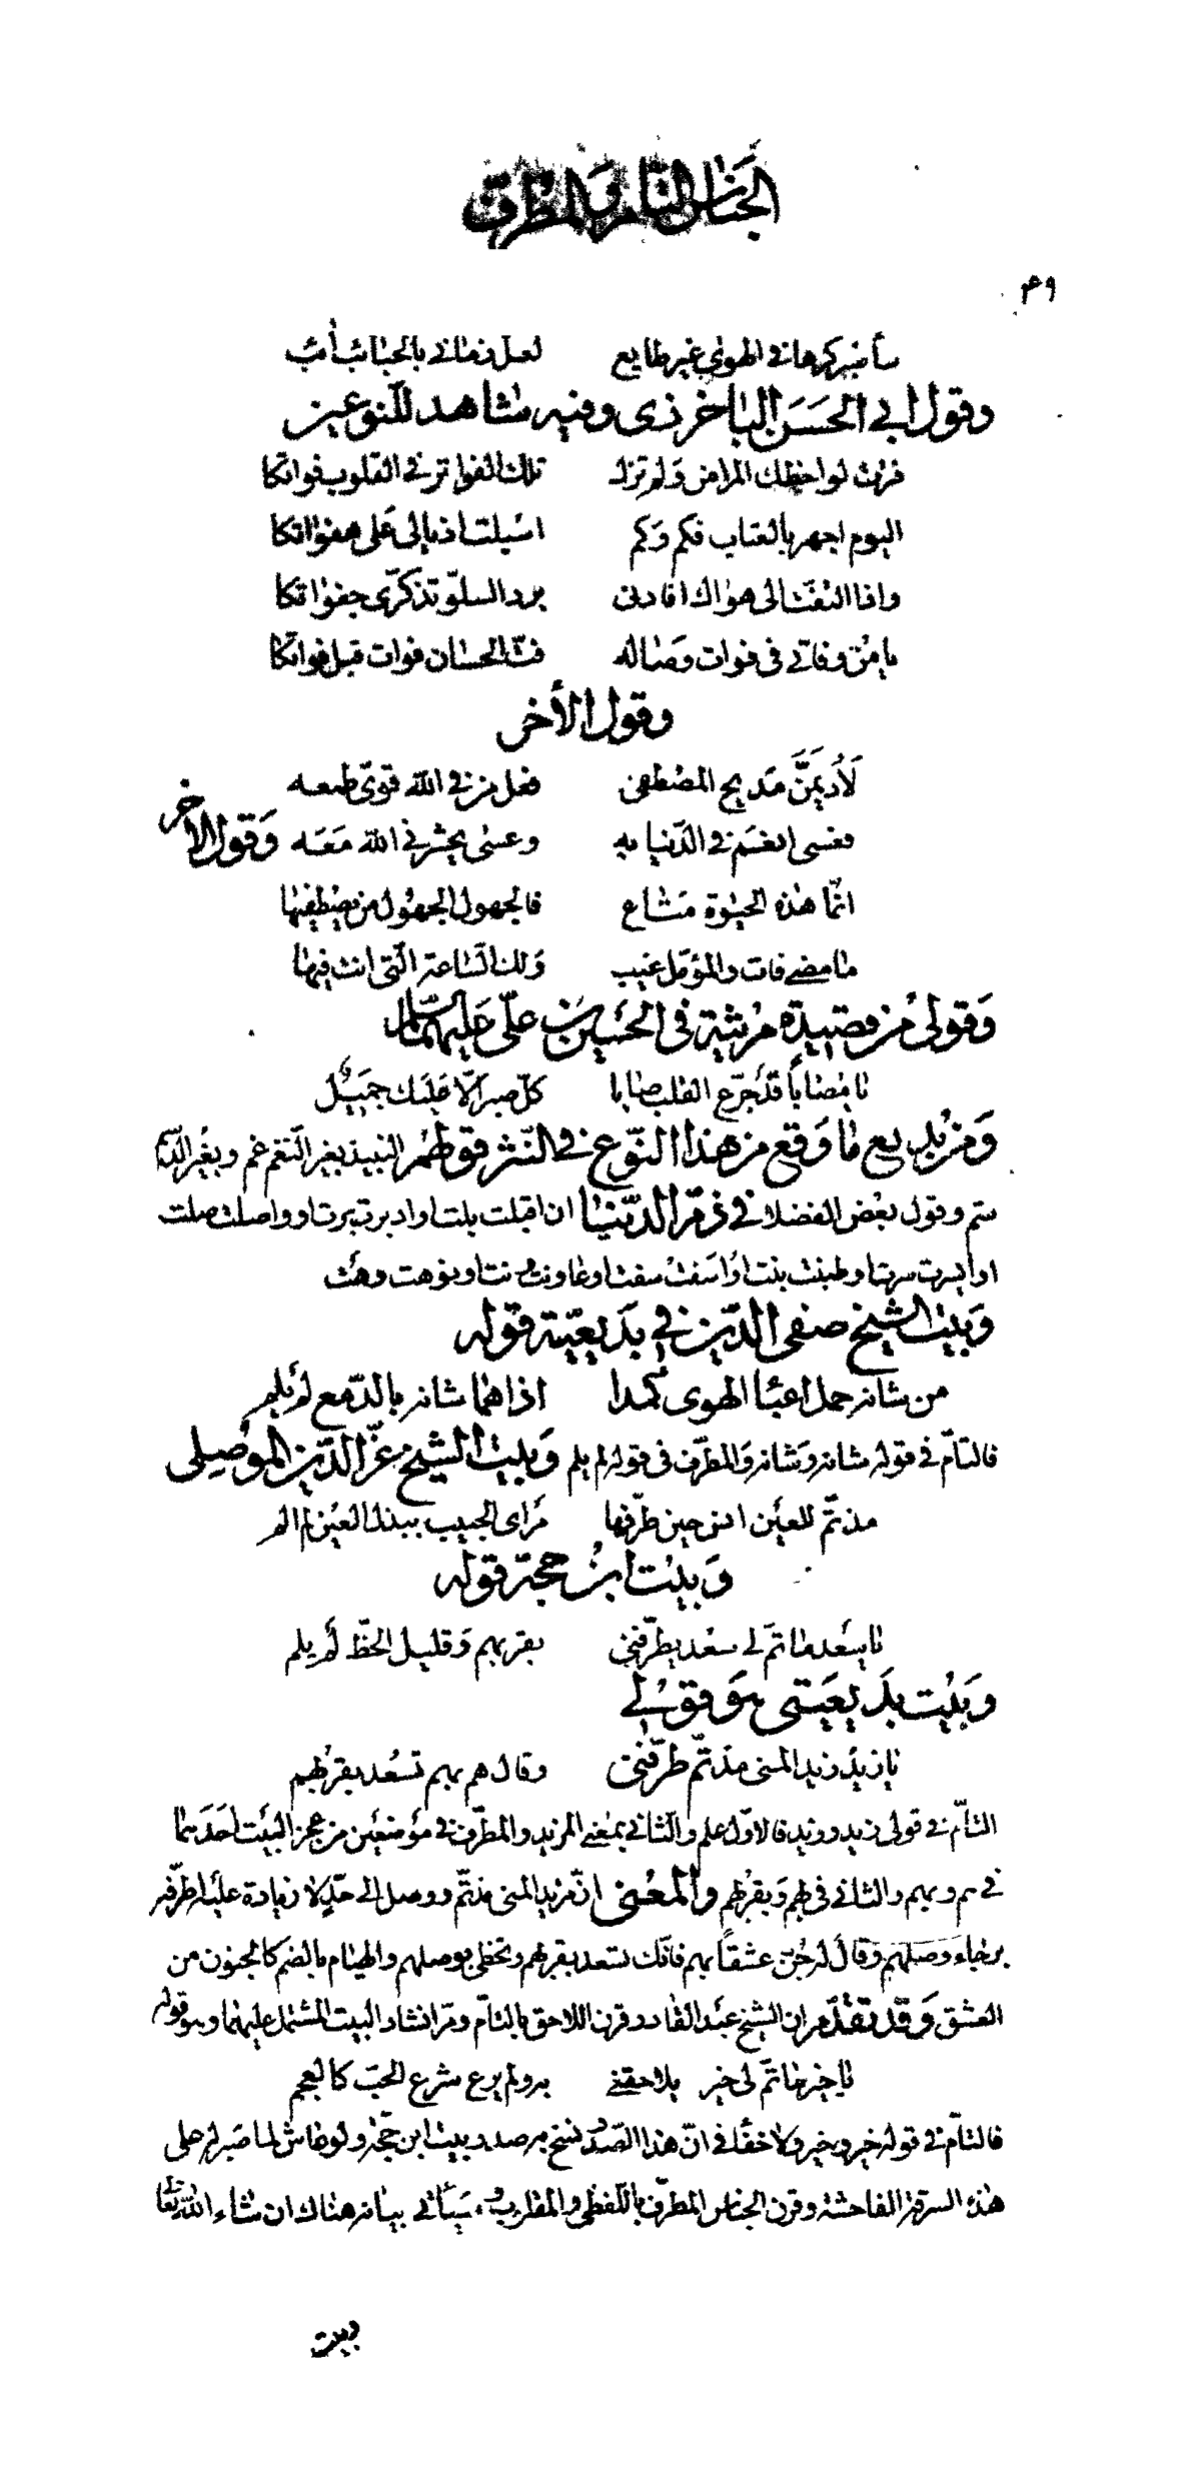 الجناس التام والمطرف
٤٩
سأصبر كرها في الهوى غير طايع لعل زماني بالحبائب
وقول ابي الحسن الباخرزي وفيه شاهد للنوعين
فرثت لواحظك المراض ولم تزل تلك الفواتر في القلوب فواتكا
اليوم اجهر بالعتاب فكم وكم اسبلت اذيالي على هفواتكا
واذا التفت الى هواك افادني برد السلو تذكري جفواتكا
يا من وفاتي في فوات وصاله فت الحسان فوات قبل فواتكا
وقول الأخر
لَأُديمَنَّ مَديح المصطفى فعل من في الله قوّى طمعه
فعسى انعم في الدّنيا به وعسى يحشرني الله مَعَه وَقول الأخر
انّما هذه الحيوة مَتاع فالجهول الجهول من يصطفيها
ما مضى فات والمؤمّل غيب وَلك السّاعة الّتى انت فيها
وَقولى من قصيدة مرثية في الحُسين بن علّى عَليهما السّلام
يا مُصاباً قد جَرّع القلب صابا كلّ صبر الّا عَليك جَميلُ
وَمن بديع ما وَقع من هذا النّوع في النّثر قولهم النبيذ بغير النّغم غم وبغير الدّسم
سم وقول بعض الفضلا في ذمّ الدّنيا ان اقبلت بلت او ادبرت برت او واصلت صلت
او ايسرت سرت او طنبت نبت او اسفت سفت او عاونت ونت او نوهت وهت
وَبيت الشيخ صفى الدّين في بَديعيّته قوله
من شانه حمل اعبا الهوى كمدا اذا هما شانه بالدّمع لم يلم
فالتامّ في قوله شانه وَشانه وَالمطرّف فى قوله لم يلم وَبيت الشيخ عزّ الدّين الموصلى
مذ تمّ للعين انسى حين طرّفها مَرآى الحبيب ببذل العين لم الم
وَبيت ابن حجة قوله
يا سعد ما تمّ لى سعد يطرّفنى بقربهم وَقليل الحظّ لم يلم
وَبيت بديعيتى هو قولى
يا زيد زيد المنى مذ تمّ طرّفنى وقال هم بهم تسعد بقربهم
التامّ في قولى زيد وزيد فالاوّل علم والثاني بمعنى المزيد والمطرّف في موضعين من عجز البيت احدهما
في هم وبهم والثاني في بهم وبقربهم والمعنى انّ مزيد المنى مذ تمّ ووصل الى حدّ لا زيادة عليه اطرفه
برجاء وصلهم وقال له جُنّ عشقاً بهم فانّك تسعد بقربهم وتحظى بوصلهم والهيام بالضم كالجنون من
العشق وَقد تقدّم ان الشيخ عبد القادر قرن اللاحق بالتامّ ومرّ انشاد البيت المشتمل عليهما وهو قوله
يا خير ما تمّ لى خير يلاحقنى به ولم يرع شرع الحبّ كالعجم
فالتامّ في قوله خير وخير ولا خفا في انّ هذا الصّدر نسخ به صدر بيت ابن حجّة ولو عاش لما صبر له على
هذه السرقة الفاحشة وقرن الجناس المطرّف باللّفظى والمقلوب وسيأتى بيانه هناك ان شاء الله تعالى
وبيت